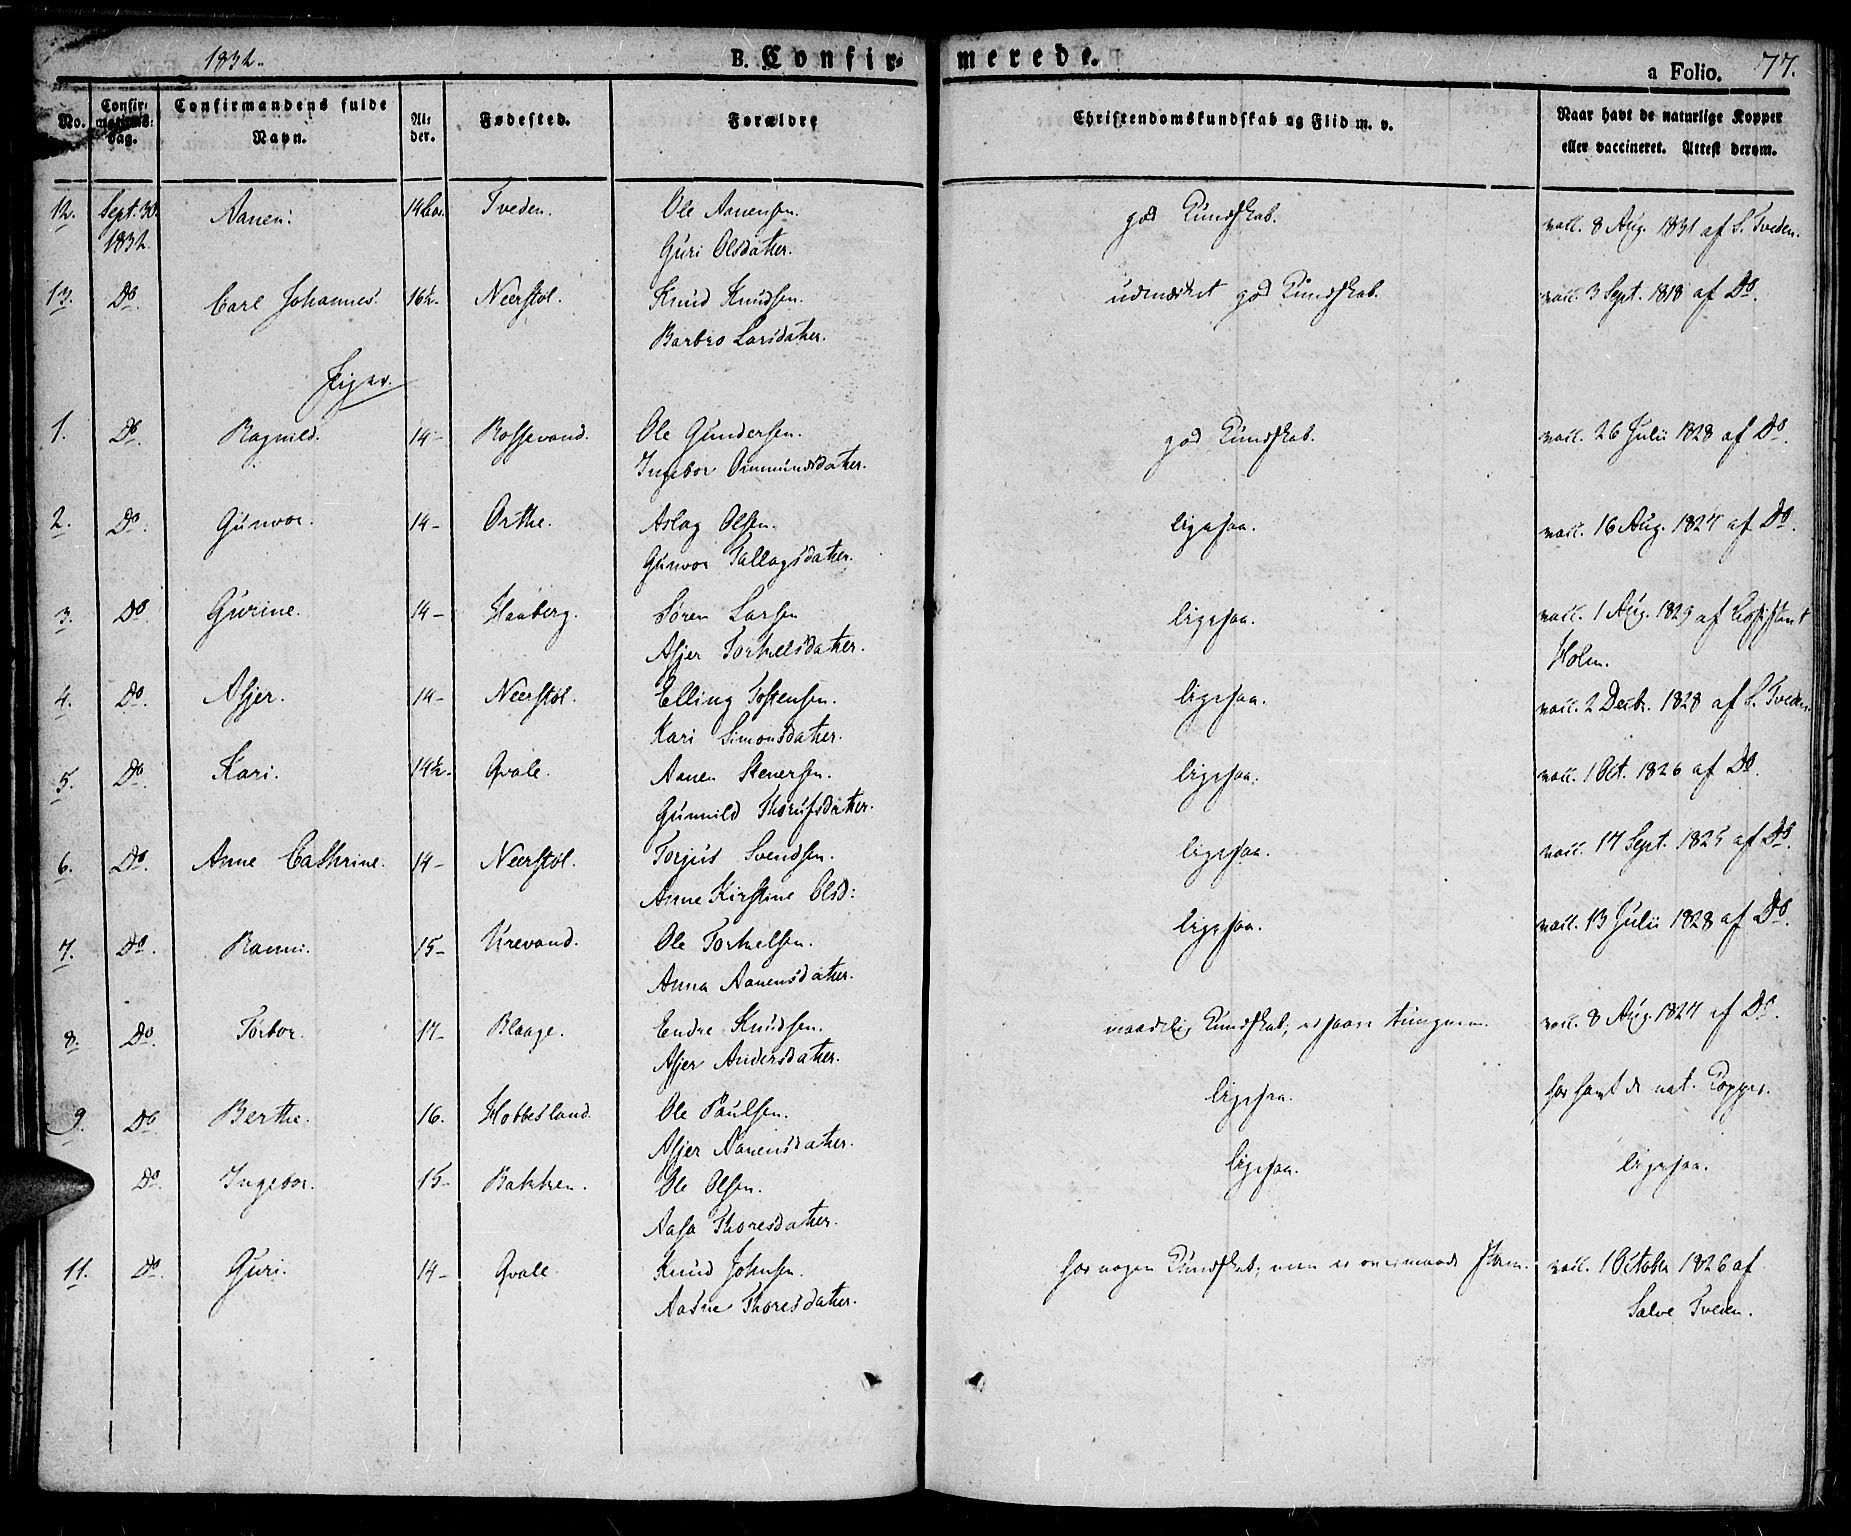 1832.
B. Confirmerede.
a Folio. 77.
No. Confirmations: Dag. Confirmandens fulde Navn. Alder. Fødested. Forældre Christendomskundskab og Flid m. v. Naar havt de naturlige Kopper eller vaccineret. Attest derom.
12. Sept. 30. 1832 Aanen. Tveden. Ole Aanensen. god Kundskab. vacc. 8 Aug. 1831 af S. Tveden.
Guri Olsdatter.
13. Do Carl Johannes. 16½. Neerstöl. Knud Knudsen. udmærket god Kundskab. vacc. 3 Sept. 1818 af Do.
Barbro Larsdatter.
Piger.
1. Do. Ragnild. 14- Rossevand. Ole Gundersen. god Kundskab. vacc. 26 Julii 1828 af Do.
Ingebor Ommundsdatter.
2. Do. Gunvor. 14- Orthe. Aslag Olsen. ligesaa. vacc. 16 Aug. 1827 af Do.
Gunvor Tallagsdatter.
3. Do. Gurine. 14- Haaberg. Sören Larsen ligesaa. vacc. 1 Aug. 1829 af
Asjer Torkelsdatter. Holm.
4. Do. Asjer. 14- Neerstöl. Elling Tostensen. ligesaa. vacc. 2 Decbr. 1828 af S. Tveden.
Kari Simonsdatter.
5. Do. Kari. 14½. Qvale. Aanen Stenersen. ligesaa. vacc. 1 Oct. 1826 af Do.
Gunnild
6. Do. Anne Cathrine. 14- Neerstöl. Torjus Svendsen. ligesaa. vacc. 17 Sept. 1825 af Do.
Anne Kirstine Olsd:
7. Do. Ranni. 15- Krevand. Ole Torkelsen. ligesaa. vacc. 13 Julii 1828 af Do.
Anna Aanensdatter.
8. Do. Torbor. 17- Blaage. Endre Knudsen. maadelig Kundskab; vacc. 8 Aug. 1827 af Do.
Asjer Andersdatter.
9. Do. Berthe. 16. Hobbesland. Ole Paulsen. ligesaa. har havt de nat. Kopper.
Asjer Aanensdatter.
Do. Ingebor. 15- Bakken. Ole Olsen. ligesaa. ligesaa.
Aasa Thoresdatter.
11. Do. Guri. 14- Qvale. Knud Johnsen. har nogen Kundskab; men er overmaade vacc. 1 October 1826 af
Aasne Thoresdatter. Salve Tveden.